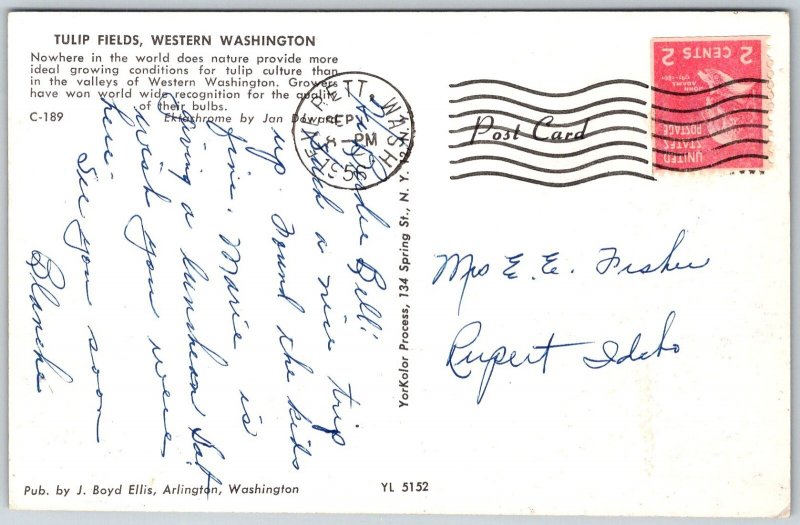 TULIP FIELDS, WESTERN WASHINGTON
Nowhere in the world does nature provide more
ideal growing conditions for tulip culture than
in the valleys of Western Washington. Growers
have won world wide recognition for the quality
of their bulbs.
C-189 Ektachrome by Jan
Bell:
Had a nice trip
up. Found the kids
fine. Marie is
giving a luncheon Sat
wish you were
here.
See you soon
Blanche
Pub. by J. Boyd Ellis, Arlington, Washington
YL 5152
YorKolor Process, 134 Spring St., N. Y. 12, N.
EVERETT. WASH.
SEP
8 - PM
1956
Post Card
2 CENTS 2
JOHN
ADAMS
UNITED
STATES
POSTAGE
Mrs E. E. Fisher
Rupert Idaho